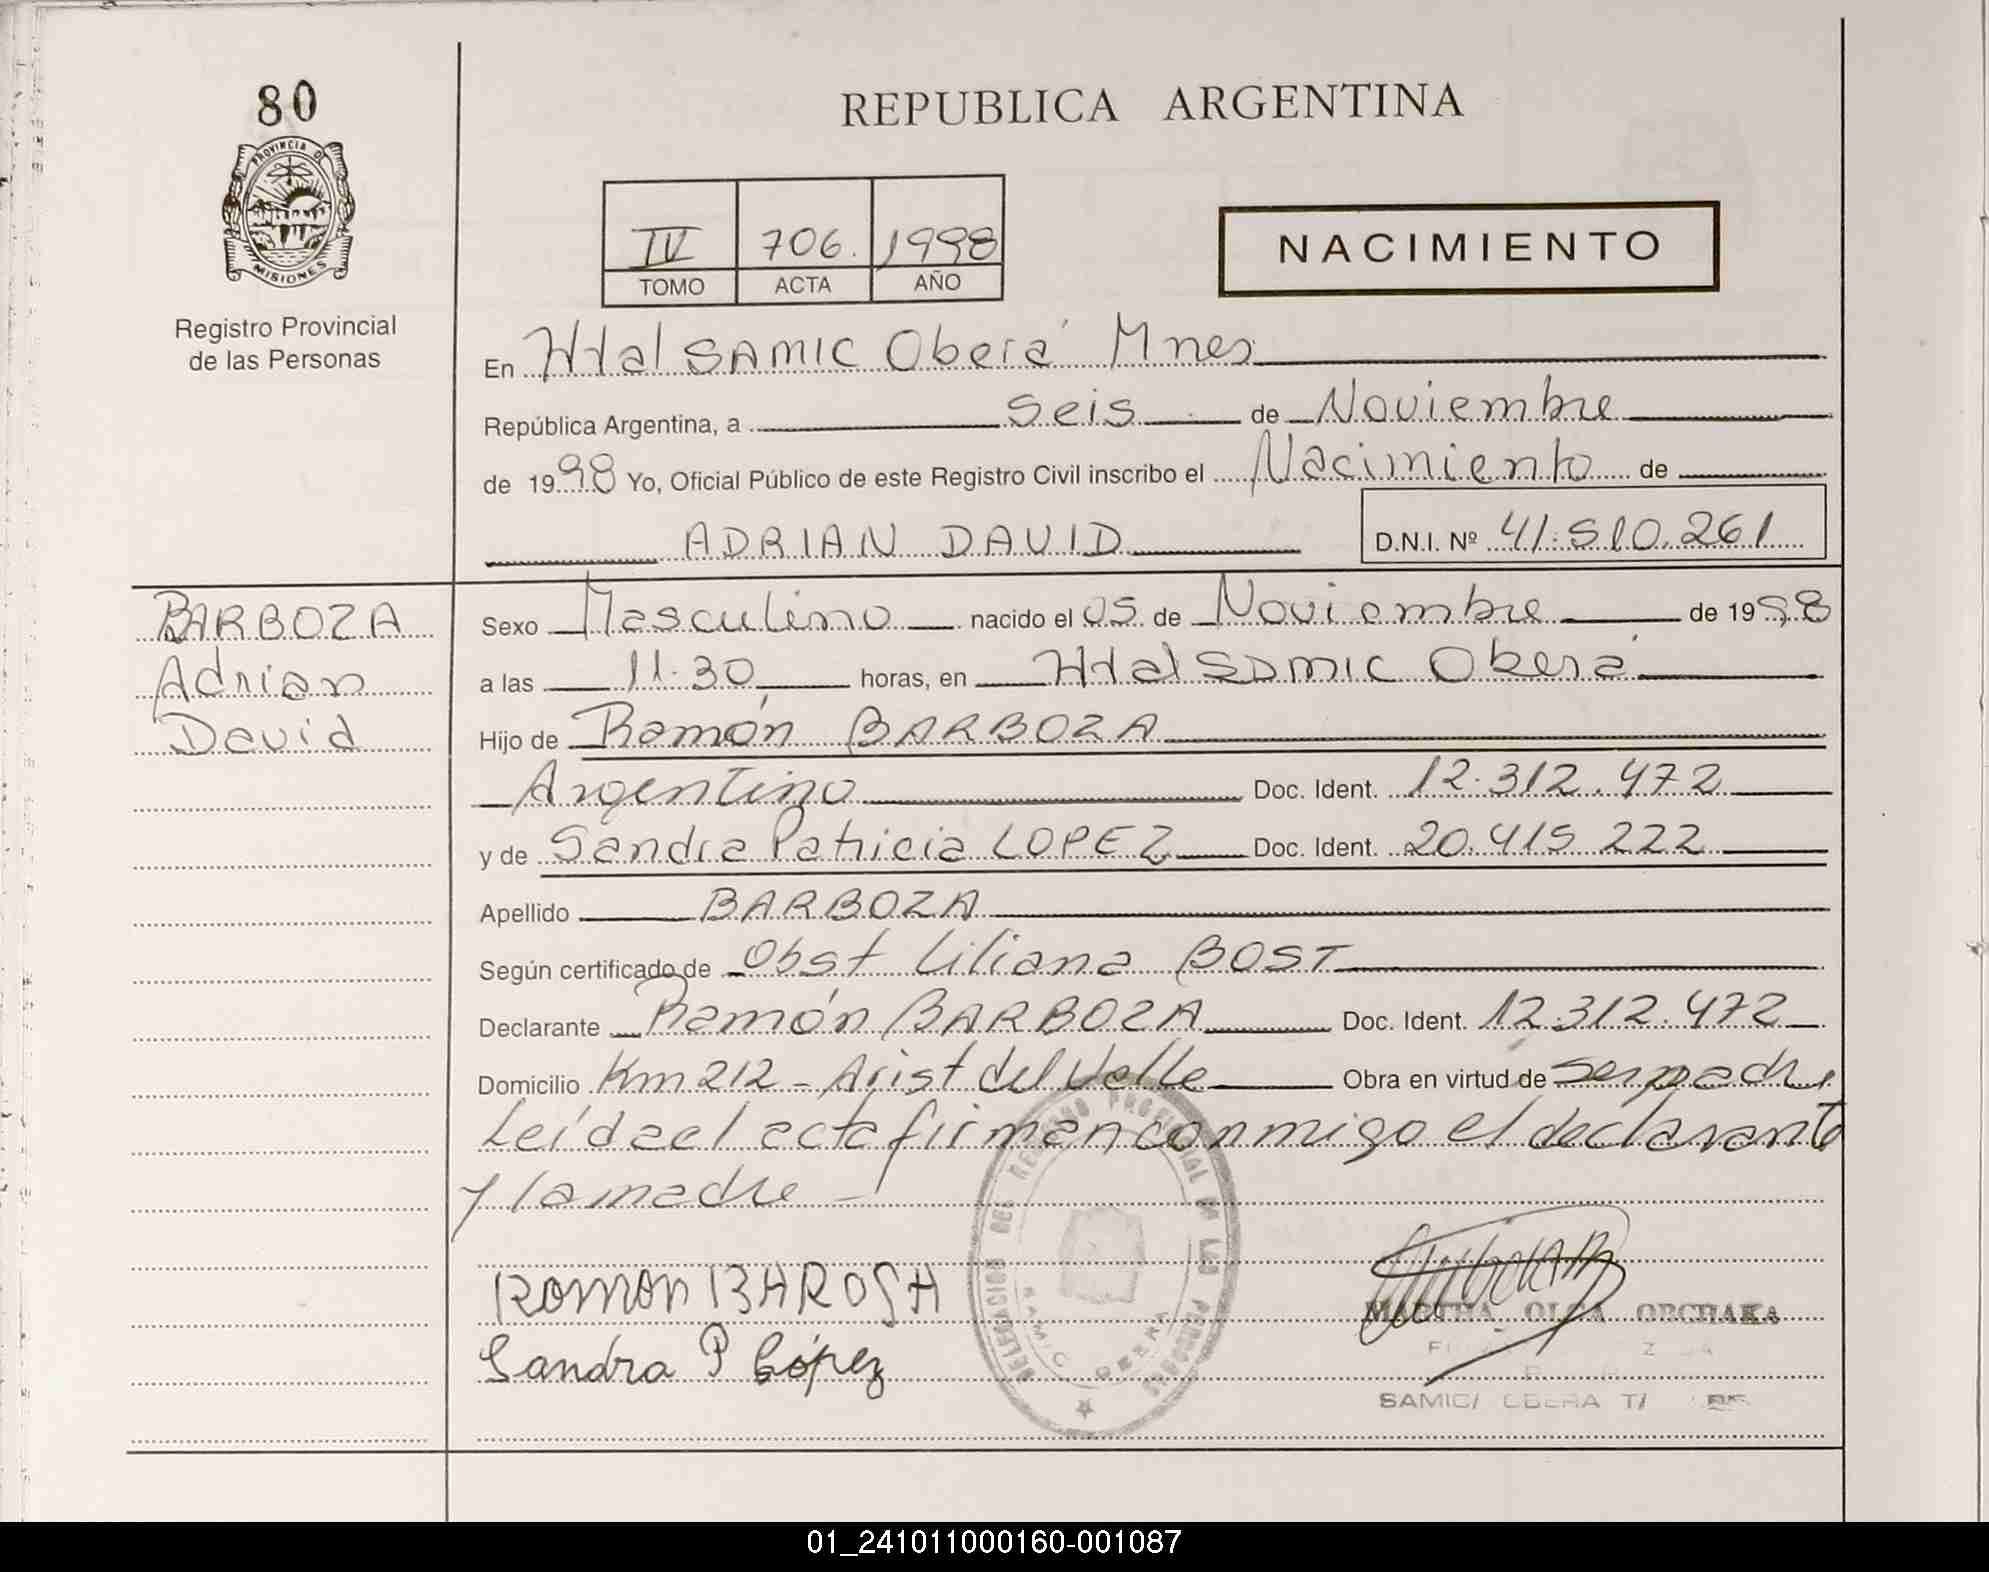 80
PROVINCIA DE
MISIONES
Registro Provincial
de las Personas
REPUBLICA ARGENTINA
IV 706. 1998
TOMO ACTA AÑO
NACIMIENTO
En Htal SAMIC Oberá Mnes
República Argentina, a seis de Noviembre
de 1998 Yo, Oficial Público de este Registro Civil inscribo el Nacimiento de
ADRIAN DAVID D.N.I. Nº 41.510.261
BARBOZA
Adrian
David
Sexo Masculino nacido el 05 de Noviembre de 1998
a las 11.30 horas, en Htal SAMIC Oberá
Hijo de Ramón BARBOZA
Argentino Doc. Ident. 12.312.472
y de Sandra Patricia LOPEZ Doc. Ident. 20.415.222
Apellido BARBOZA
Según certificado de Obst Liliana BOST
Declarante Ramón BARBOZA Doc. Ident. 12.312.472
Domicilio Km 212 - Arist del Valle Obra en virtud de ser padre
Leída el acta firman conmigo el declarante
y la madre -
DELEGACION DEL REGISTRO PROVINCIAL DE LAS PERSONAS
SAMIC OBERA
Ramon BAROSA
Sandra P López
MARTHA OLGA OBCHAKA
SAMIC/ OBERA
01_241011000160-001087